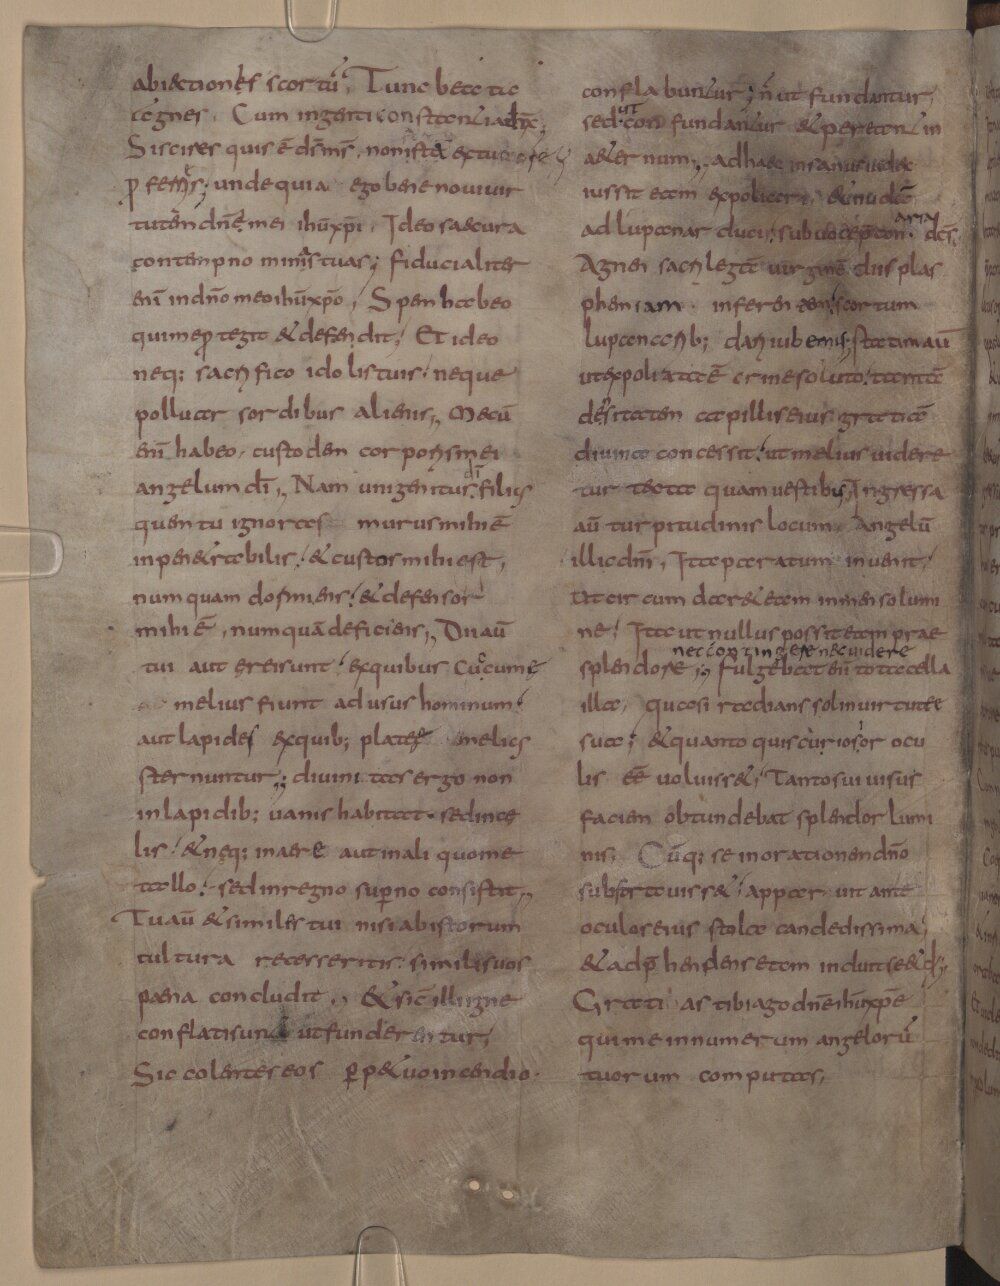 abiectionis scortū; Tunc beata
agnes. Cum ingenti constantia dix̄;
Si scires quis ē d̄s m̄s, non ista ex tuo
ꝓferres; unde quia ego bene novi vir
tutem dnī mei ihū xp̄i, Ideo secura
contempno minas tuas; fiducialiter
enī in dnō meo ihū xp̄o, Spem habeo
qui me ꝓtegit & defendit; Et ideo
neq; sacrifico idolis tuis. neque
polluar sordibus alienis,, Mecū
enī habeo, custodem corporis mei
angelum dī,, Nam unigenitus dī filius
quem tu ignoras murus mihi ē
inpenetrabilis. & custos mihi est,
numquam dormiens. & defensor
mihi ē, numquā deficiens,, Dii aū
tui aut erei sunt. ex quibus cucume
melius fiunt ad usus hominum.
aut lapides ex quib; plateę melius
sternuntur; divinitas ergo non
in lapidib; vanis habitat. sed in cę
lis. & neq; in aere aut in ali quo me
tallo. sed in regno sup̄no consistit,,
Tu aū & similes tui nisi ab istorum
cultura recesseritis. similis vos
paena concludit,, & sic illi igne
conflati sunt ut funderentur,
Sic colentes eos ꝑpetuo incendio.
conflabuntur; n̄ ut fundantur,
sed ut confundantur & pereant in
aeternum,, ad haec insanus iudex
iussit eam expoliari, & nudā
ad lupanar duci. sub voce p̄conaria dc̄s,
Agnen sacrilegā virginē diis blas
phemiam inferentem. scortum
lupanarib; dari iubemus. statim aū
ut expoliata ē crine soluto. tantā
densitatem capillis eius gratia
divina concessit. ut melius videre
tur tecta quam vestibus, Ingressa
aū turpitudinis locum Angelū
illic dn̄i, Ita paratum invenit,
Ut circumdaret eam inmenso lumi
ne. Ita ut nullus possit eam prae
nec contingere nec videre
splendore,, Fulgebat enī tota cella
illa, quasi radians sol in virtute
sua; & quanto quis curiosior ocu
lis eē voluisset, Tanto sui visus
faciem obtundebat splendor lumi
nis; Cūq; se in orationem dnō
substravisset. apparuit ante
oculos eius stola candedissima,
& adp̄hendens eam induit se & dix̄;
Gratias tibi ago dnē ihū xp̄e
qui me in numerum angelorū
tuorum computas,